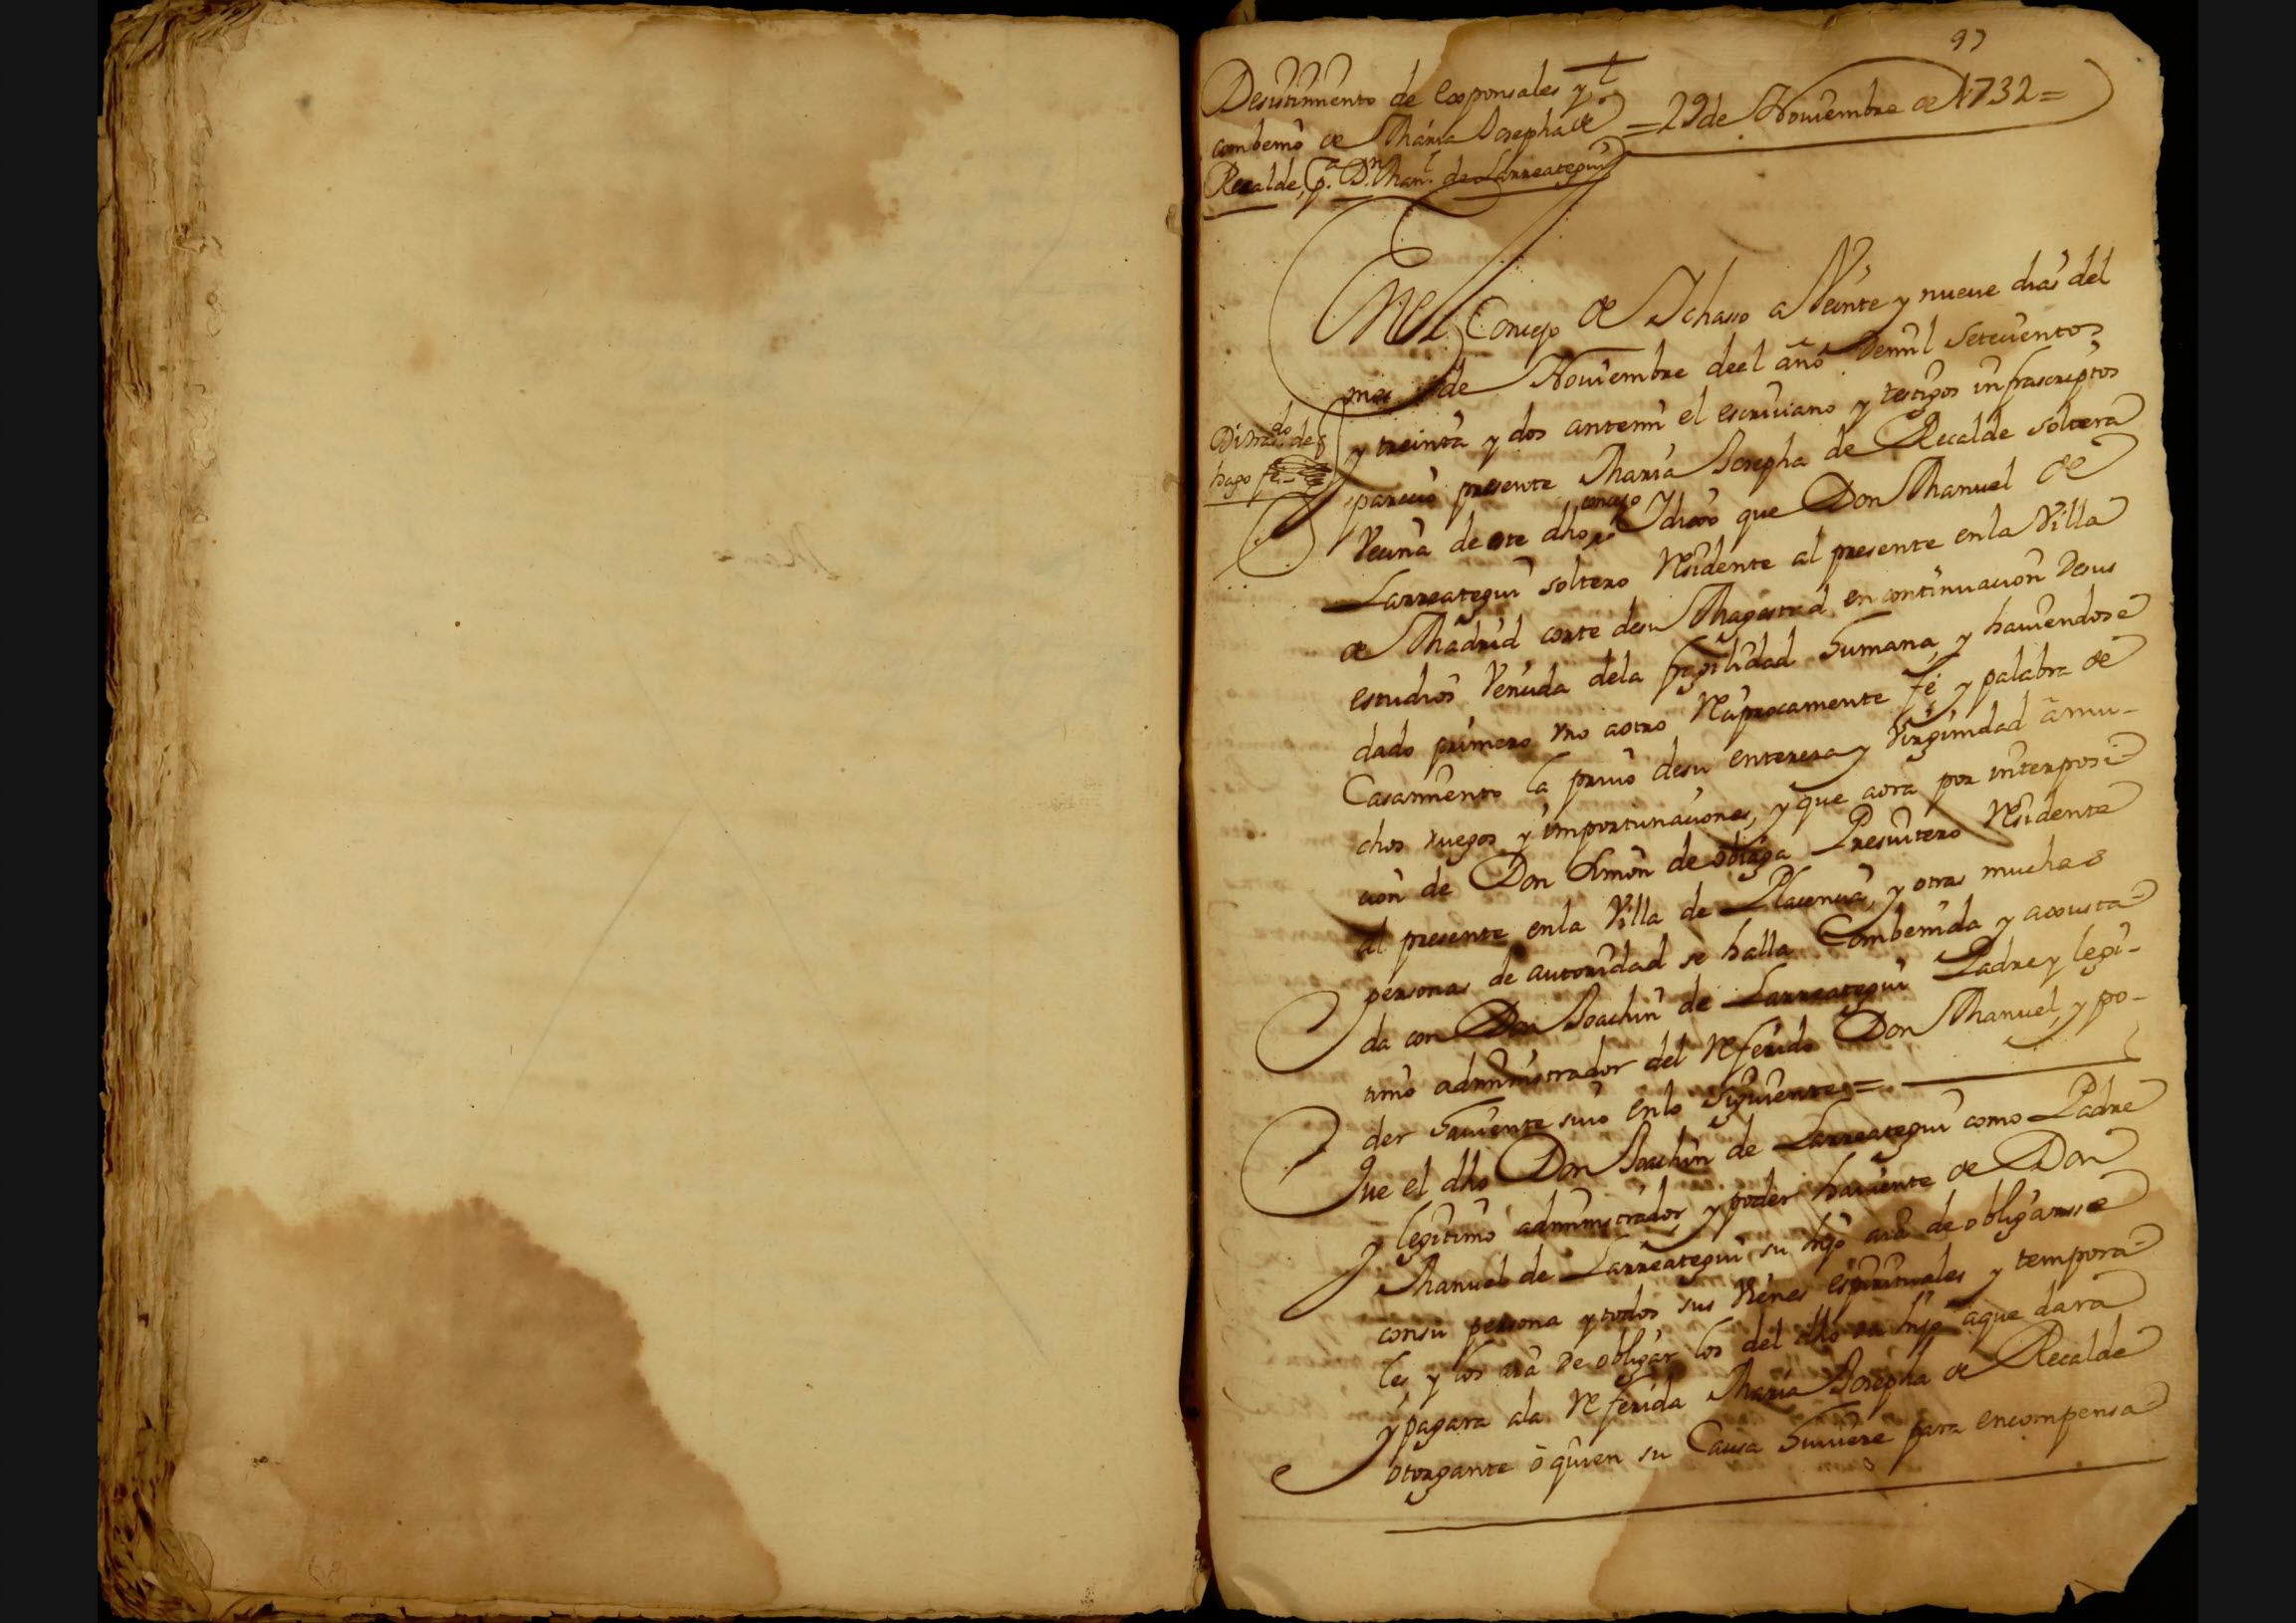 97
Desistimiento de esponsales y
combenio de Maria Josepha de
Recalde, pa. Dn Manl. de Larreategui
= 29 de Noviembre de 1732 =
En el Concejo de Ichasso a Veinte y nueve dias del
mes de Noviembre deel año demil setecientos
y treinta y dos antemi el escriviano y testigos infrascriptos
parecio presente Maria Josepha de Recalde soltera
Vecina de este dho concejo Y dixo que Don Manuel de
Larreategui soltero Residente al presente enla Villa
de Madrid corte desu Magestad en continuacion desus
estudios Vencida dela fragilidad humana, y haviendose
dado primero uno aotro Reciprocamente fé y palabra de
Casamiento la privó desu entereza y Virginidad â mu-
chos ruegos y importunaciones, y que aora por interposi-
cion de Don Simon de Presvitero Residente
al presente enla Villa de Placencia, y otras muchas
personas de autoridad se halla Combenida y axusta-
da con Don Joachin de Larreategui Padre y legi-
timo administrador del Referido Don Manuel, y po-
der haviente suio enlo siguiente =
Que el dho Don Joachin de Larreategui como Padre
y legitimo administrador y poder haviente de Don
Manuel de Larreategui su hijo aia de obligarsse
consu persona y todos sus Vienes espirituales y tempora-
les y los aia de obligar los del dho su hijo aque dara
y pagara ala Referida Maria Josepha de Recalde
otorgante ô quien su Causa huviere para encompensa-
hago fe